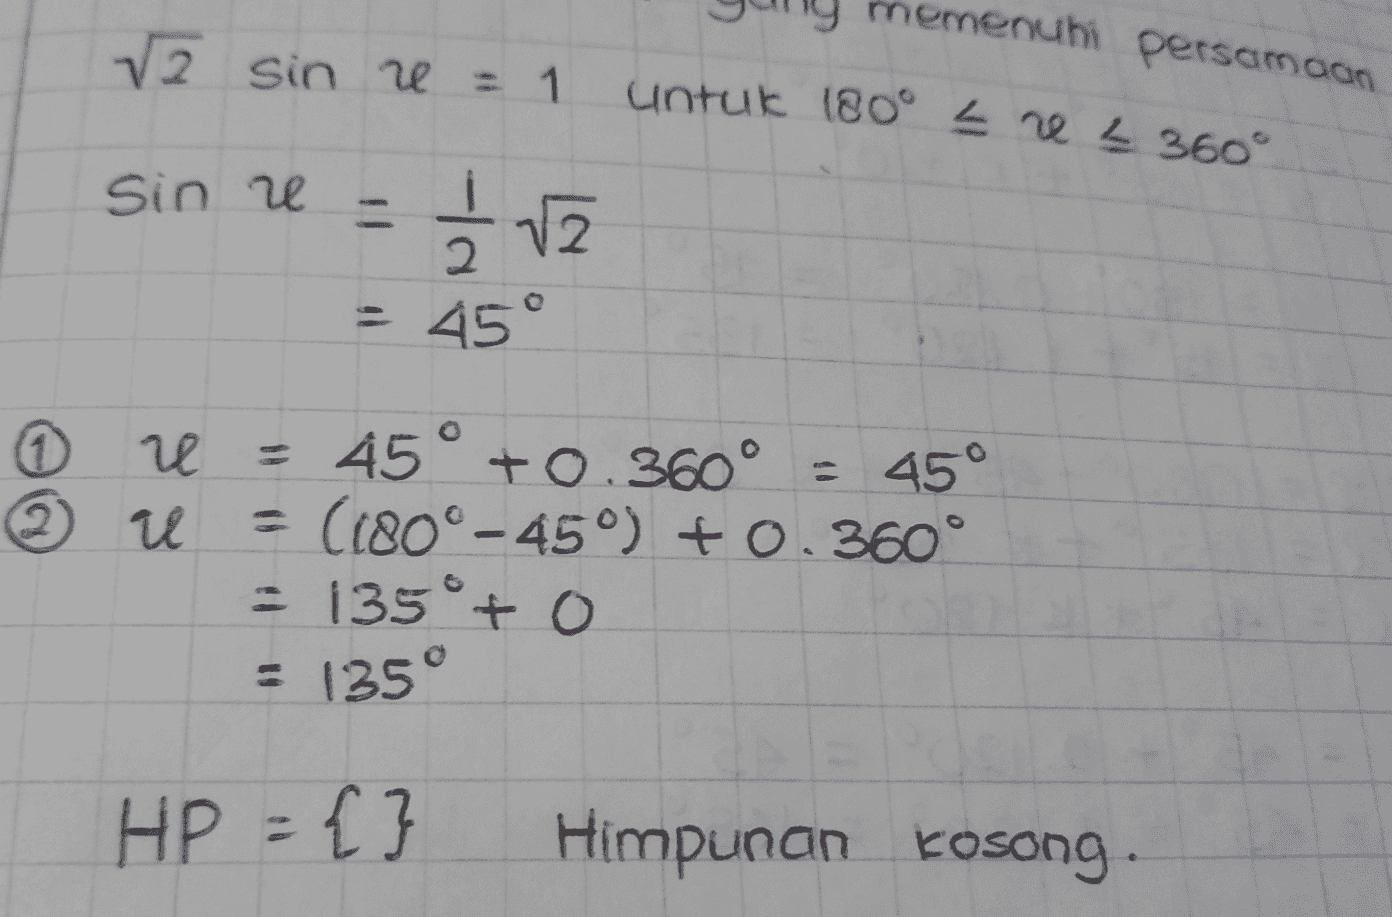 yang memenuhi persamaan
√2 sin x = 1 untuk 180° ≤ x ≤ 360°
sin x = 1/2 √2
= 45°
① x = 45° + 0.360° = 45°
② x = (180° - 45°) + 0.360°
= 135° + 0
= 135°
HP = { } Himpunan kosong.